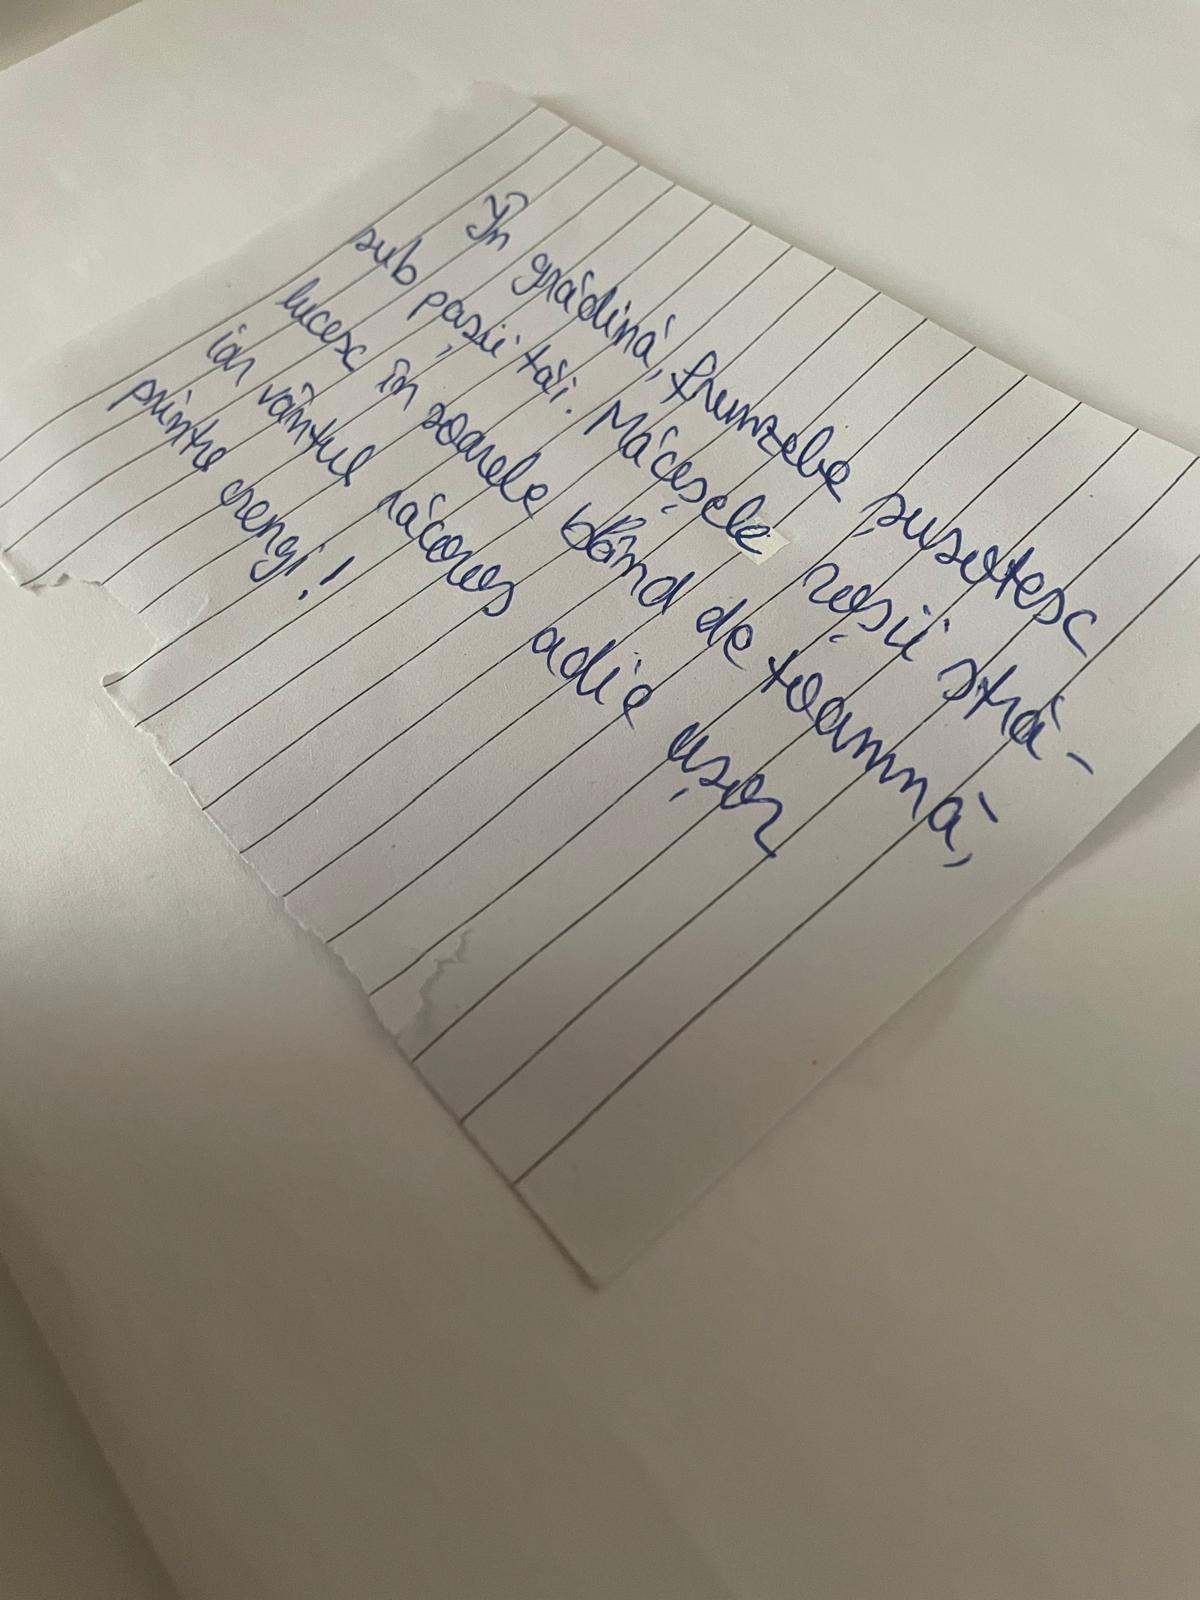 În grădină, frunzele șușotesc
sub pașii tăi. Măceșele roșii stră-
lucesc în soarele blând de toamnă,
iar vântul răcoros adie ușor
printre crengi!